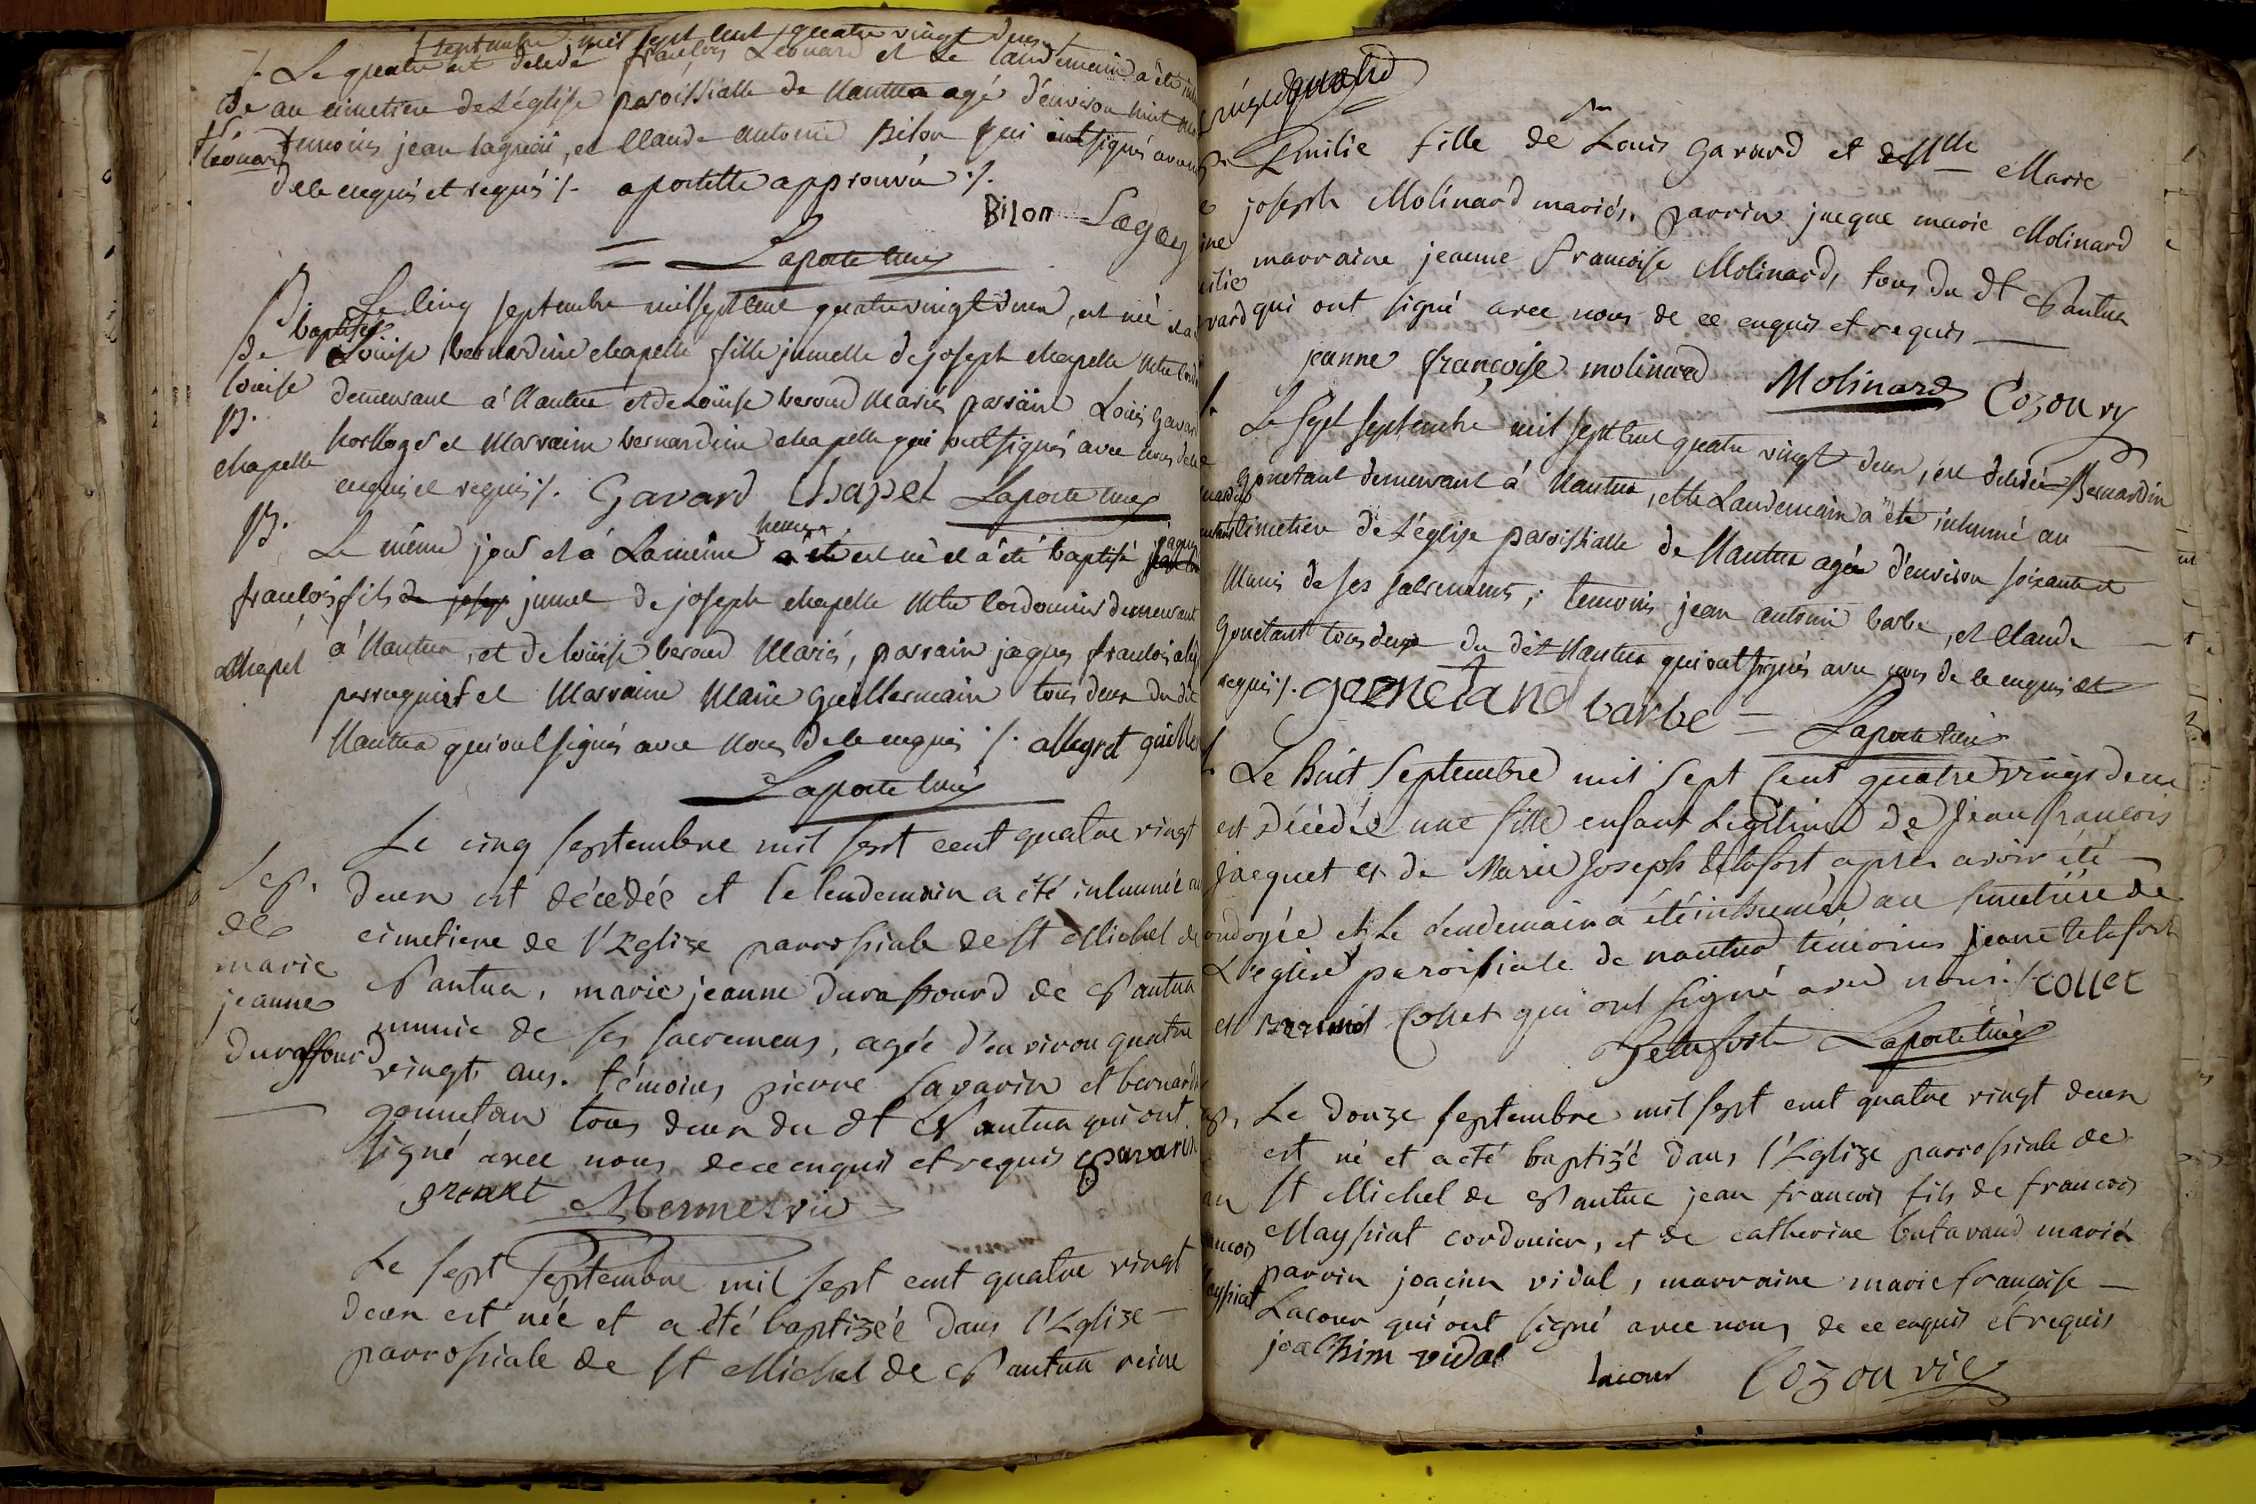 septembre mil sept cent quatre vingt deux
Le quatre est décédé françois Léonard et le landemain a été
au cimetiere de L'église paroissialle de Nantua agé d'environ huit
Léonard
temoins jean lagniai, et Claude antoine Bilon qui ont signés avec
de ce enquis et requis ./. aportette approuvée ./.
Bilon Lagay
Laporte curé
B.
Le cinq septembre mil sept cent quatre vingt deux, est née et a
baptisée
de Loüise bernardine chapelle fille jumelle de joseph chapelle Mtre
louise demeurant à Nantua et de Loüise beroud Mariés parrain Loüis Gavard
B.
chapelle horlloger et Marraine bernardine chapelle qui ont signés avec nous de ce
enquis et requis ./. Gavard Chapel Laporte curé
B.
Le même jour et à La même heure est né et a été baptisé jaques
françois fils jumel de joseph chapelle Mtre Cordonnier demeurant
chapel à Nantua, et de loüise beroud Mariés, parrain jaques françois
perruquier et Marraine Marie Guillermain tous deux du dit
Nantua qui ont signés avec Nous de ce enquis ./. allegret
Laporte curé
Le cinq septembre mil sept cent quatre vingt
Sep. deux est décédée et le lendemain a été inhumée au
de cimetiere de l'Eglize parrossiale de St Michel de
marie Nantua, marie jeanne durassourd de Nantua
jeanne munie de ses sacremens, agée d'environ quatre
durassourd vingt ans. témoins pierre Savarin et bernard
gounetan tous deux du dt Nantua qui ont
signé avec nous de ce enquis et requis Savarin
Mermet vic
Le sept Septembre mil sept cent quatre vingt
deux est née et a été baptizée dans l'Eglize
parrossiale de St Michel de Nantua reine
Emilie fille de Sr Louis Gavard et de Dlle Marie
joseph Molinard mariés. parrin jacque marie Molinard
marraine jeanne francoise Molinard, tous du dt Nantua
qui ont signé avec nous de ce enquis et requis
jeanne françoise molinard Molinard Cozon vy
Le sept septembre mil sept cent quatre vingt deux, est décédé Bernardin
gonetant demeurant à Nantua, et le Landemain a été inhumé au
cimetiere de L'église paroissialle de Nantua agée d'environ soixante et
Munis de ses sacrements, temoins jean antoine barbe, et Claude
Gonetant tous deux du dit Nantua qui ont signés avec nous de ce enquis et
requis ./. barbe Laporte curé
Le huit Septembre mil sept Cent quatre vingt deux
est décédée une fille enfant Légitime de jean françois
jacquet et de Marie joseph telafort après avoir été
ondoyée et Le lendemain a été inhumée au cimetière de
L'eglise paroissiale de nantua témoins jeane telafort
et Collet qui ont signé avec nous ./. Collet
Laporte curé
B. Le douze septembre mil sept cent quatre vingt deux
est né et a été baptizé dans l'Eglize parrossiale de
St Michel de Nantua jean francois fils de francois
Mayssiat cordonier, et de catherine butavand mariés
parrin joacim vidal, marraine marie francoise
Lacour qui ont signé avec nous de ce enquis et requis
joachim vidal lacour Cozon vic